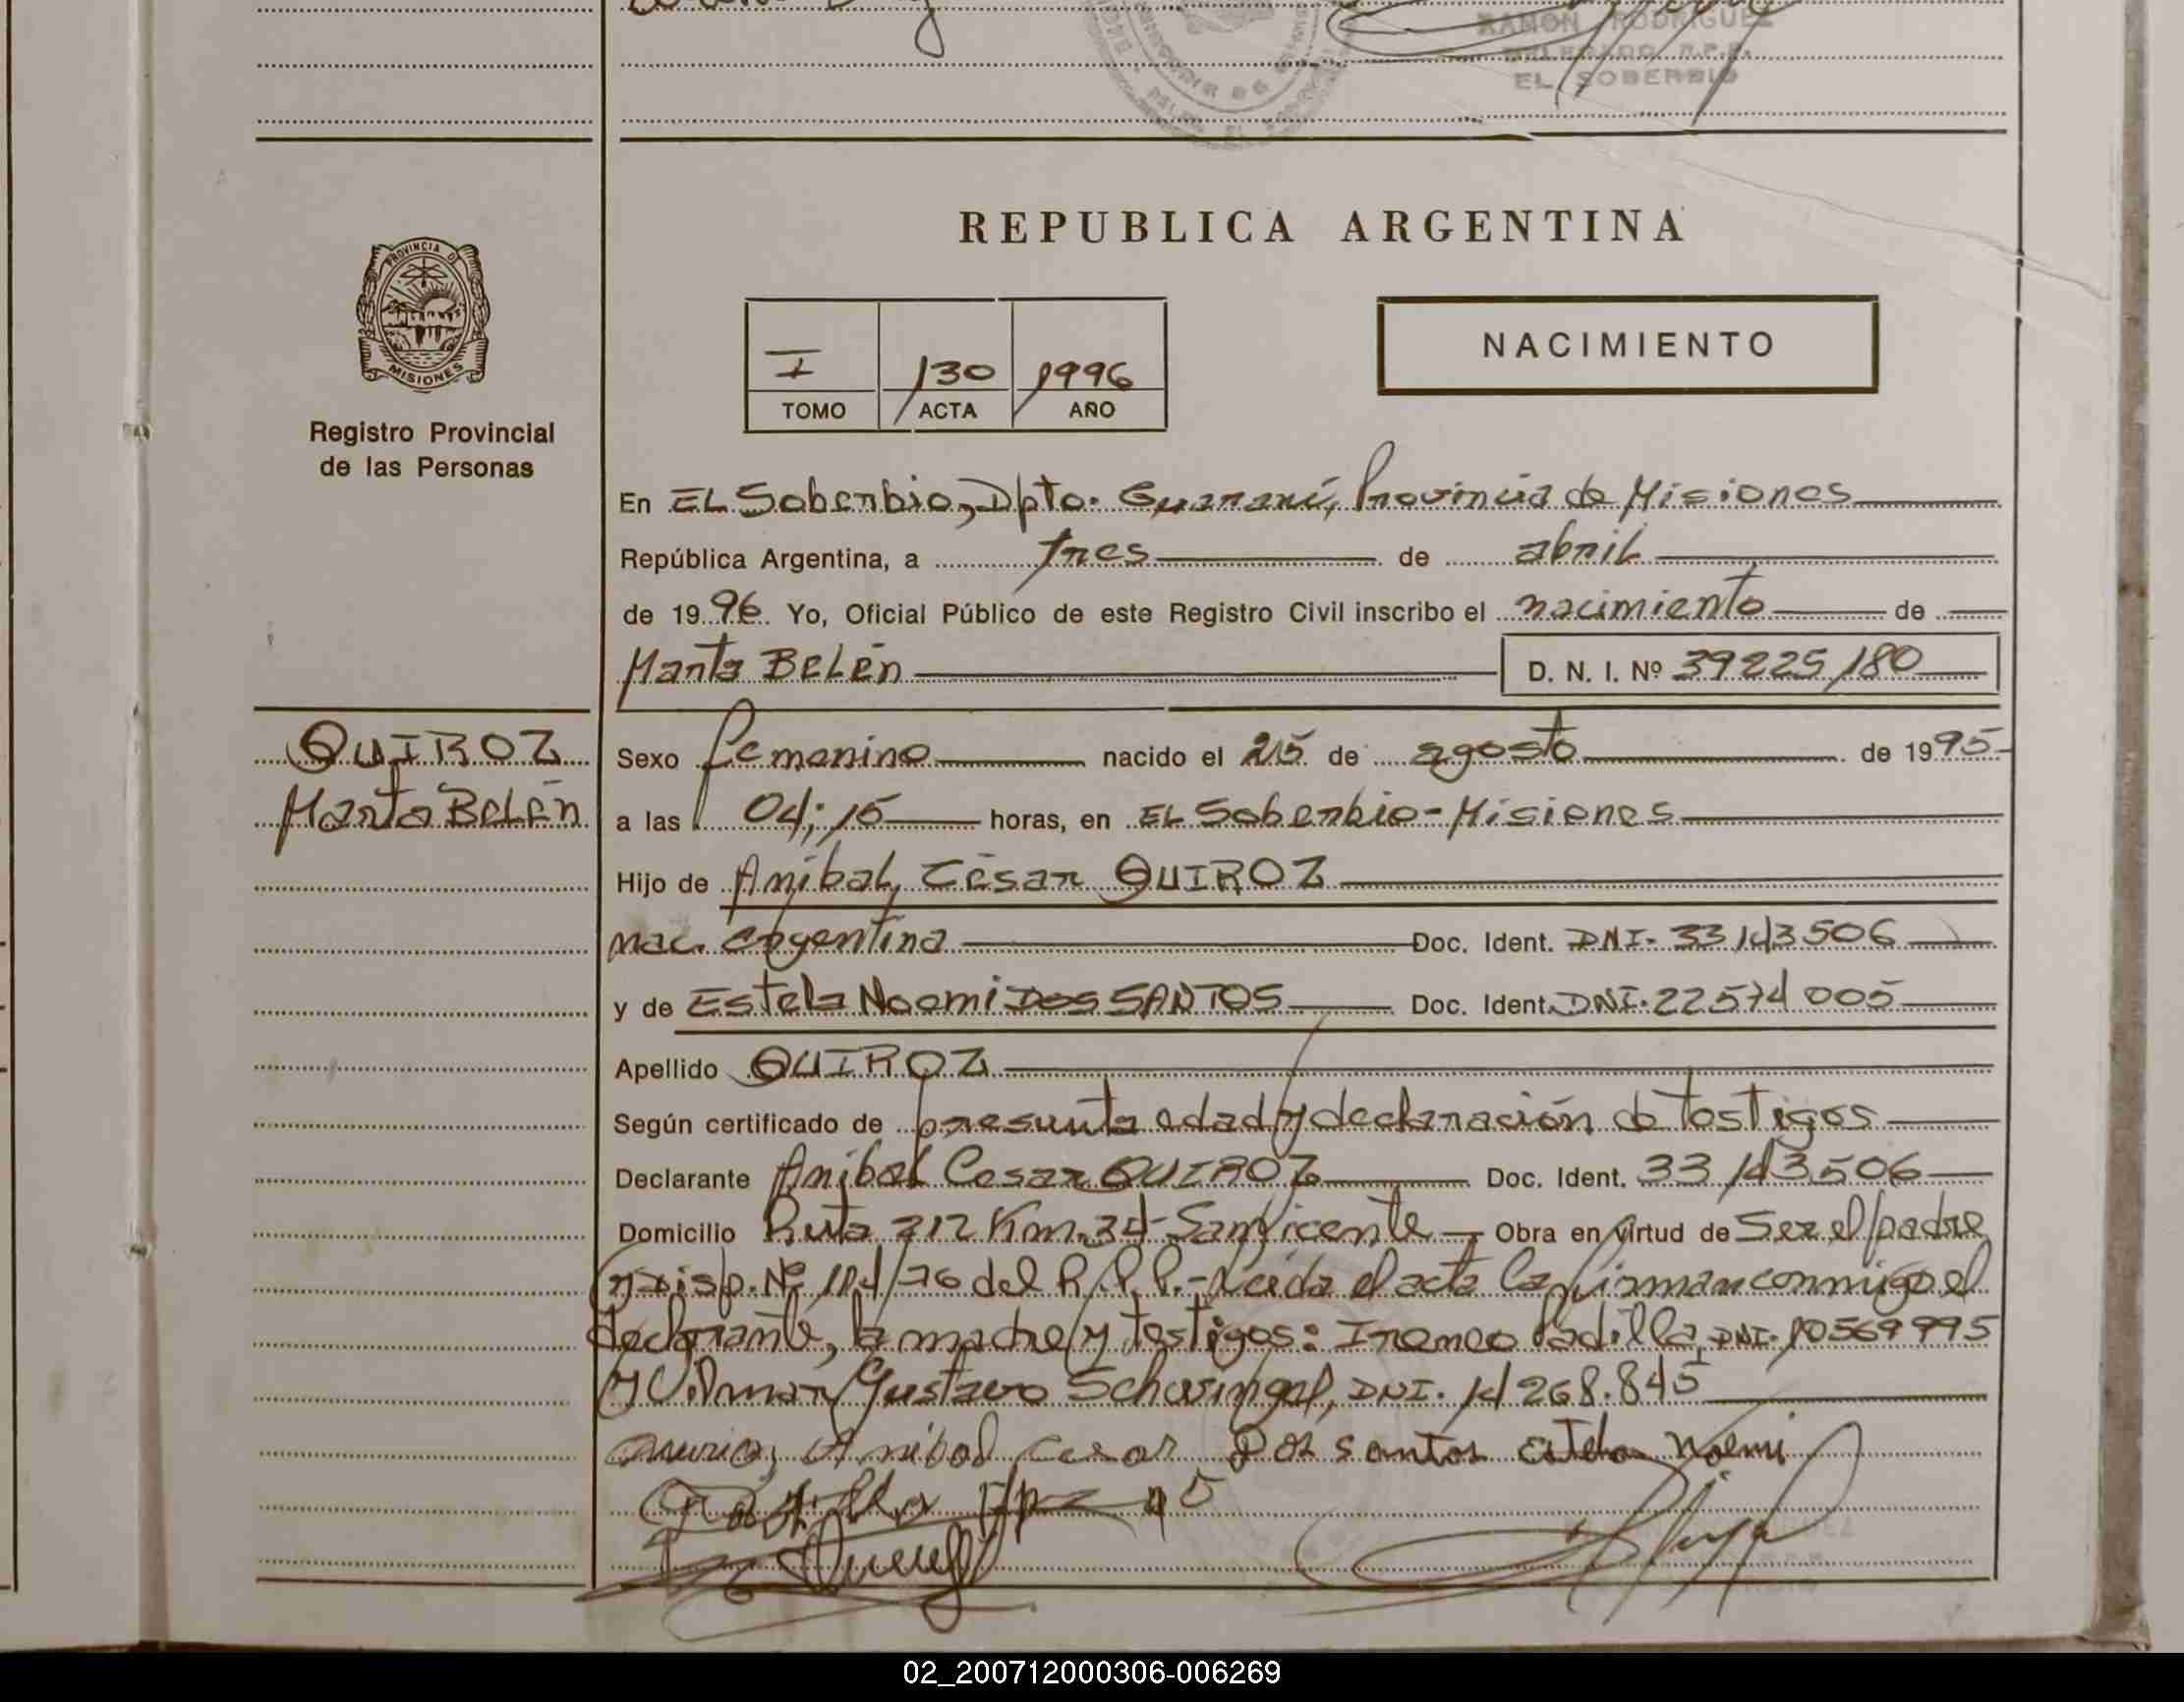 RAMON RODRIGUEZ
DELEGADO R.P.P.
EL SOBERBIO
REPUBLICA ARGENTINA
PROVINCIA DE
MISIONES
Registro Provincial
de las Personas
NACIMIENTO
I 130 1996
TOMO ACTA AÑO
En EL Soberbio, Dpto. Guaraní, Provincia de Misiones
República Argentina, a tres de abril
de 1996 Yo, Oficial Público de este Registro Civil inscribo el nacimiento de
Marta BELén D. N. I. Nº 39225180
QUIROZ
Marta BELén
Sexo femenino nacido el 25 de agosto de 1995
a las 04;15 horas, en EL Soberbio-Misiones
Hijo de Aníbal César QUIROZ
nac. argentina Doc. Ident. DNI- 33143506
y de Estela Noemi DOS SANTOS Doc. Ident. DNI. 22574005
Apellido QUIROZ
Según certificado de presunta edad y declaración de testigos
Declarante Anibal Cesar QUIROZ Doc. Ident. 33143506
Domicilio Ruta 212 Km. 34- San Vicente Obra en virtud de Ser el padre
y Disp. Nº 114/76 del R.P.P.- Leida el acta la firman conmigo el
declarante, la madre y testigos: Ireneo Padilla, DNI. 10569995
y Vilmar Gustavo Schwingel, DNI. 14268.845
Anibal Cesar Dos santos Estela Noemi
02_200712000306-006269